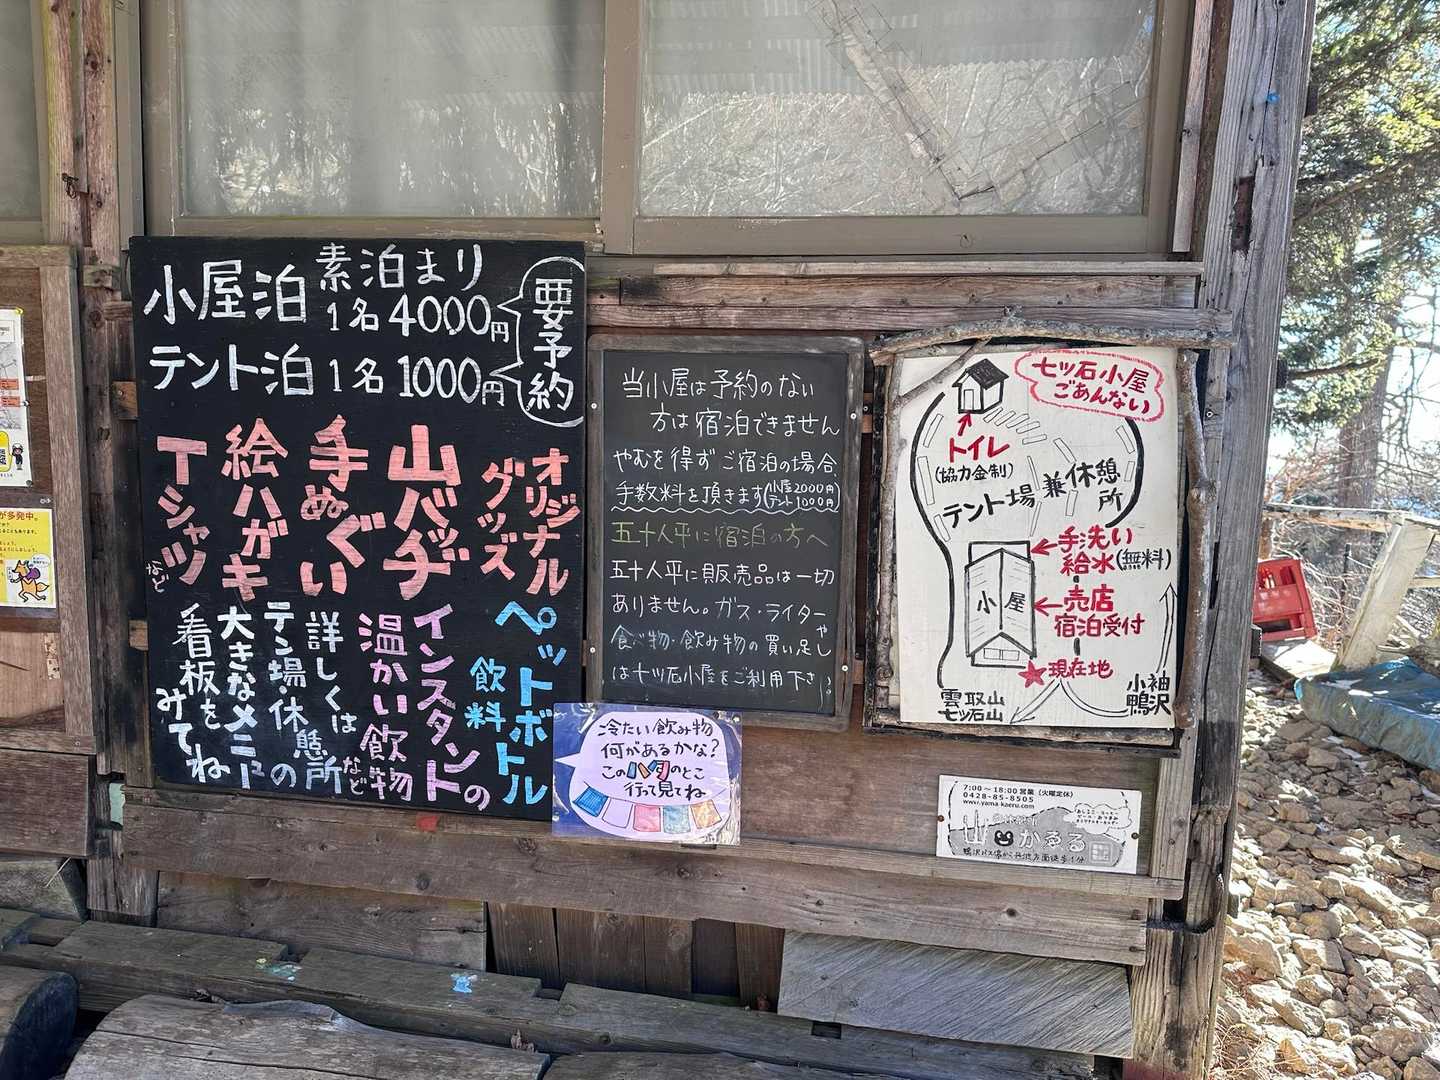 小屋泊 素泊まり
1名4000円
テント泊 1名1000円
要予約
オリジナル
グッズ
山バッヂ
手ぬぐい
絵ハガキ
Tシャツ
など
ペットボトル
飲料
インスタントの
温かい飲物
など
詳しくは
テン場・休憩所の
大きなメニューの
看板を
みてね
当小屋は予約のない
方は宿泊できません
やむを得ずご宿泊の場合、
手数料を頂きます(小屋2000円
テント1000円)
五十人平に宿泊の方へ
五十人平に販売品は一切
ありません。ガス・ライターや
食べ物・飲み物の買い足し
は七ツ石小屋をご利用下さい。
冷たい飲み物
何があるかな?
このハタのとこ
行って見てね
七ツ石小屋
ごあんない
トイレ
(協力金制)
テント場兼休憩所
手洗い
給水(無料)
小屋
売店
宿泊受付
現在地
雲取山
七ツ石山
小袖
鴨沢
7:00～18:00営業(火曜定休)
0428-85-8505
www.yama-kaeru.com
山かゑる
鴨沢バス停から丹波方面徒歩1分